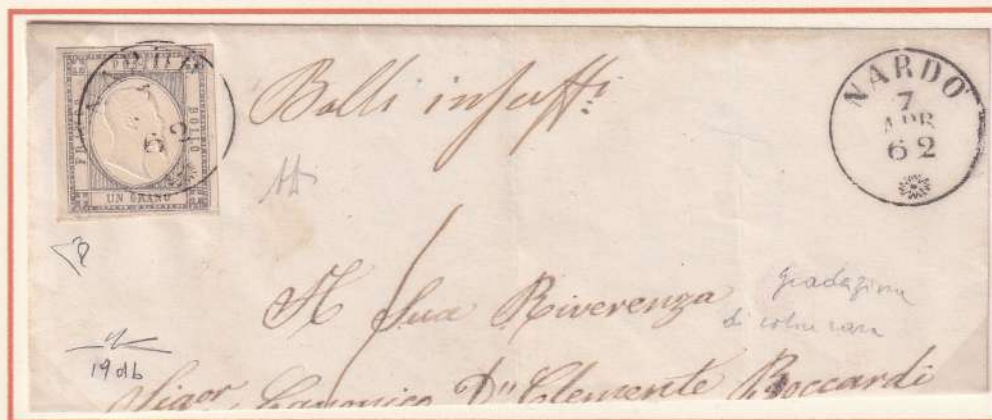 FRANCO
BOLLO
UN GRANO
NARDÒ
62
Bolli insuffti:
NARDÒ
7
APR
62
A Sua Riverenza
gradazione
di colore rara
19db
Sigor Canonico Dn Clemente Boccardi